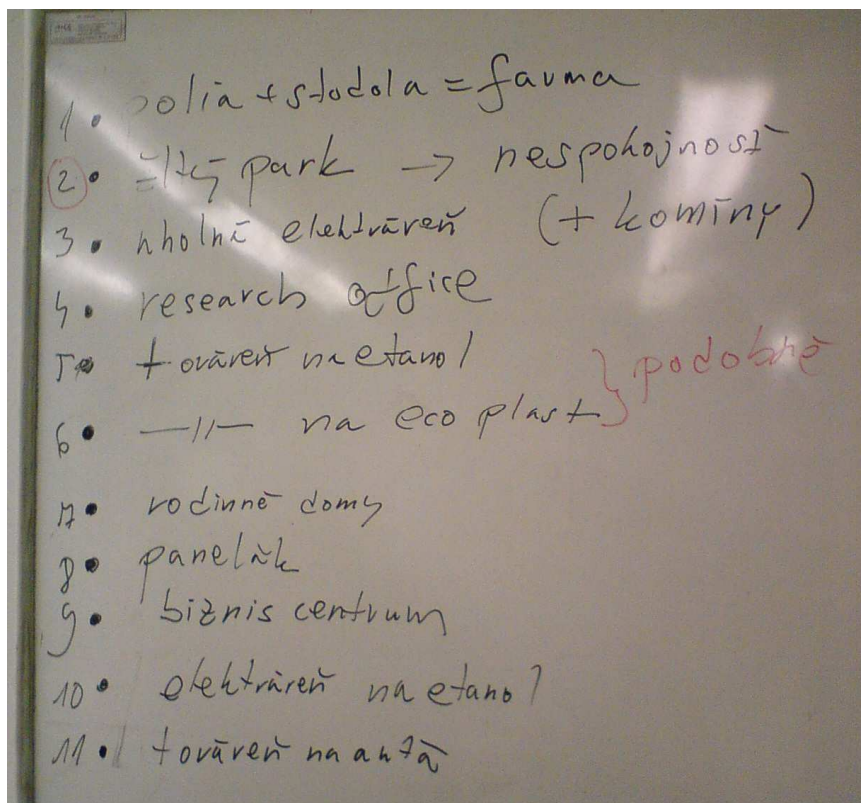 1. polia + stodola = farma
2. žltý park → nespokojnosť
(+ komíny)
3. uholná elektráreň
4. research office
5. továreň na etanol
6. —//— na eco plast } podobné
7. rodinné domy
8. panelák
9. biznis centrum
10. elektráreň na etanol
11. továreň na autá